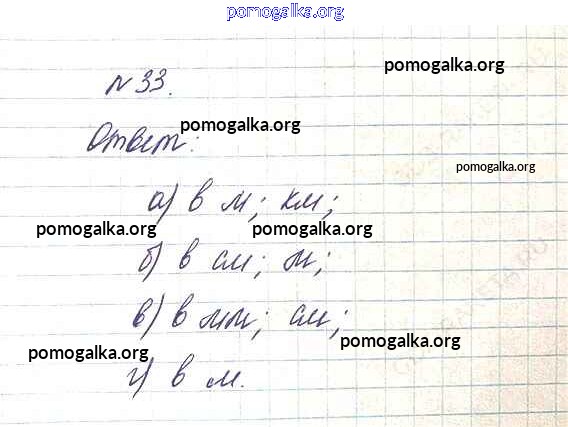 pomogalka.org
№33.
pomogalka.org
Ответ:
pomogalka.org
pomogalka.org
а) в м; км;
pomogalka.org pomogalka.org
б) в см; м;
в) в мм; см;
pomogalka.org
pomogalka.org
г) в м.